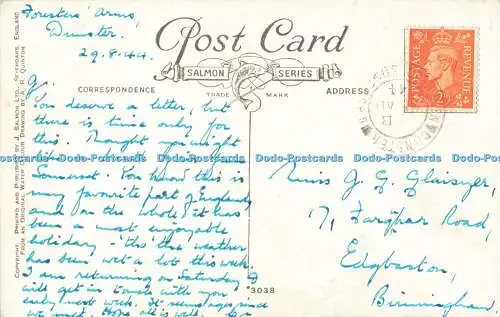 Foresters' Arms,
Dunster.
29.8.44
Post Card
SALMON SERIES
TRADE MARK
CORRESPONDENCE
ADDRESS
POSTAGE
REVENUE
DUNSTER
G.
You deserve a letter, but
there is time only for
this. Thought you might
like
Somerset. You know this is
my favourite part of England,
and on the whole it has
been a most enjoyable
holiday tho' the weather
has been wet a lot this week.
I am returning on Saturday &
will get in touch with you
early next week. It seems ages since
we met. Hope all is well.
Miss J. G. Glaisyer,
71, Farquhar Road,
Edgbaston,
Birmingham,
*3038
COPYRIGHT. PRINTED AND PUBLISHED BY J. SALMON LTD., SEVENOAKS, ENGLAND
FROM AN ORIGINAL WATER COLOUR DRAWING BY A. R. QUINTON
Dodo-Postcards Dodo-Postcards Dodo-Postcards Dodo-Postcards Dodo-Postcards Dodo-Postcards